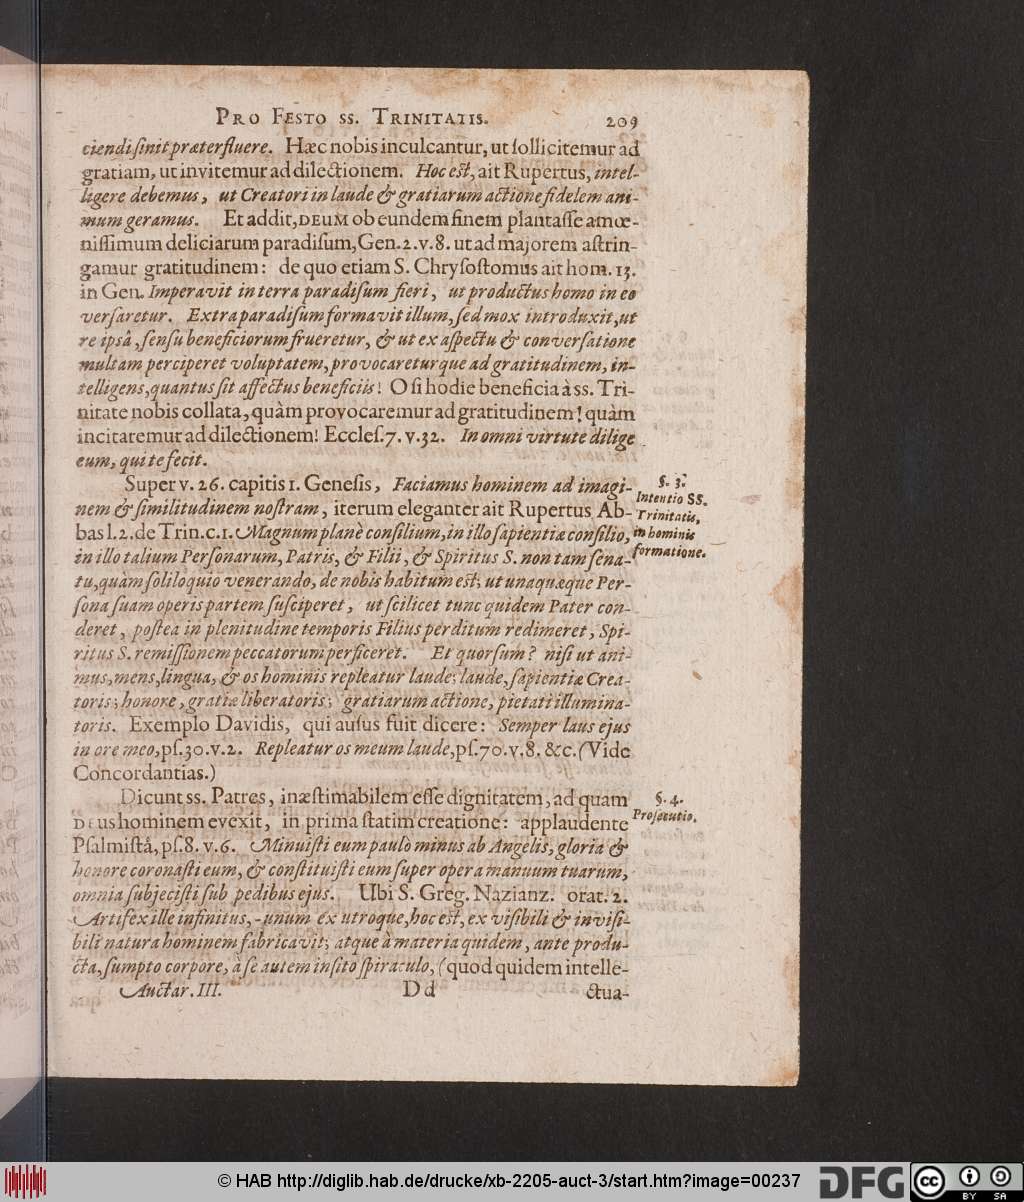 PRO FESTO SS. TRINITATIS. 209
ciendi ſinit præterfluere. Hæc nobis inculcantur, ut ſollicitemur ad
gratiam, ut invitemur ad dilectionem. Hoc eſt, ait Rupertus, intel-
ligere debemus, ut Creatori in laude & gratiarum actione fidelem ani-
mum geramus. Et addit, DEUM ob eundem finem plantaſſe amœ-
niſſimum deliciarum paradiſum, Gen. 2. v. 8. ut ad majorem aſtrin-
gamur gratitudinem: de quo etiam S. Chryſoſtomus ait hom. 13.
in Gen. Imperavit in terra paradiſum fieri, ut productus homo in eo
verſaretur. Extra paradiſum formavit illum, ſed mox introduxit, ut
re ipsâ, ſenſu beneficiorum frueretur, & ut ex aſpectu & converſatione
multam perciperet voluptatem, provocareturque ad gratitudinem, in-
telligens, quantus ſit affectus beneficiis! O ſi hodie beneficia à ss. Tri-
nitate nobis collata, quàm provocaremur ad gratitudinem! quàm
incitaremur ad dilectionem! Eccleſ. 7. v. 32. In omni virtute dilige
eum, qui te fecit.
Super v. 26. capitis 1. Geneſis, Faciamus hominem ad imagi-
nem & ſimilitudinem noſtram, iterum eleganter ait Rupertus Ab-
bas l. 2. de Trin. c. 1. Magnum planè conſilium, in illo ſapientiæ conſilio,
in illo talium Perſonarum, Patris, & Filii, & Spiritus S. non tam ſena-
tu, quàm ſoliloquio venerando, de nobis habitum eſt; ut unaquæque Per-
ſona ſuam operis partem ſuſciperet, ut ſcilicet tunc quidem Pater con-
deret, poſtea in plenitudine temporis Filius perditum redimeret, Spi-
ritus S. remiſſionem peccatorum perficeret. Et quorſum? niſi ut ani-
mus, mens, lingua, & os hominis repleatur laude; laude, ſapientiæ Crea-
toris; honore, gratiæ liberatoris; gratiarum actione, pietati illumina-
toris. Exemplo Davidis, qui auſus fuit dicere: Semper laus ejus
in ore meo, pſ. 30. v. 2. Repleatur os meum laude, pſ. 70. v. 8. &c. (Vide
Concordantias.)
Dicunt ss. Patres, inæſtimabilem eſſe dignitatem, ad quam
DEus hominem evexit, in prima ſtatim creatione: applaudente
Pſalmiſtâ, pſ. 8. v. 6. Minuiſti eum paulò minus ab Angelis, gloria &
honore coronaſti eum, & conſtituiſti eum ſuper opera manuum tuarum,
omnia ſubjeciſti ſub pedibus ejus. Ubi S. Greg. Nazianz. orat. 2.
Artifex ille infinitus, unum ex utroque, hoc eſt, ex viſibili & inviſi-
bili natura hominem fabricavit; atque à materia quidem, ante produ-
cta, ſumpto corpore, à ſe autem inſito ſpiraculo, (quod quidem intelle-
Auctar. III. Dd ctua-
§. 3.
Intentio SS.
Trinitatis,
in hominis
formatione.
§. 4.
Proſecutio.
© HAB http://diglib.hab.de/drucke/xb-2205-auct-3/start.htm?image=00237
DFG
cc BY SA